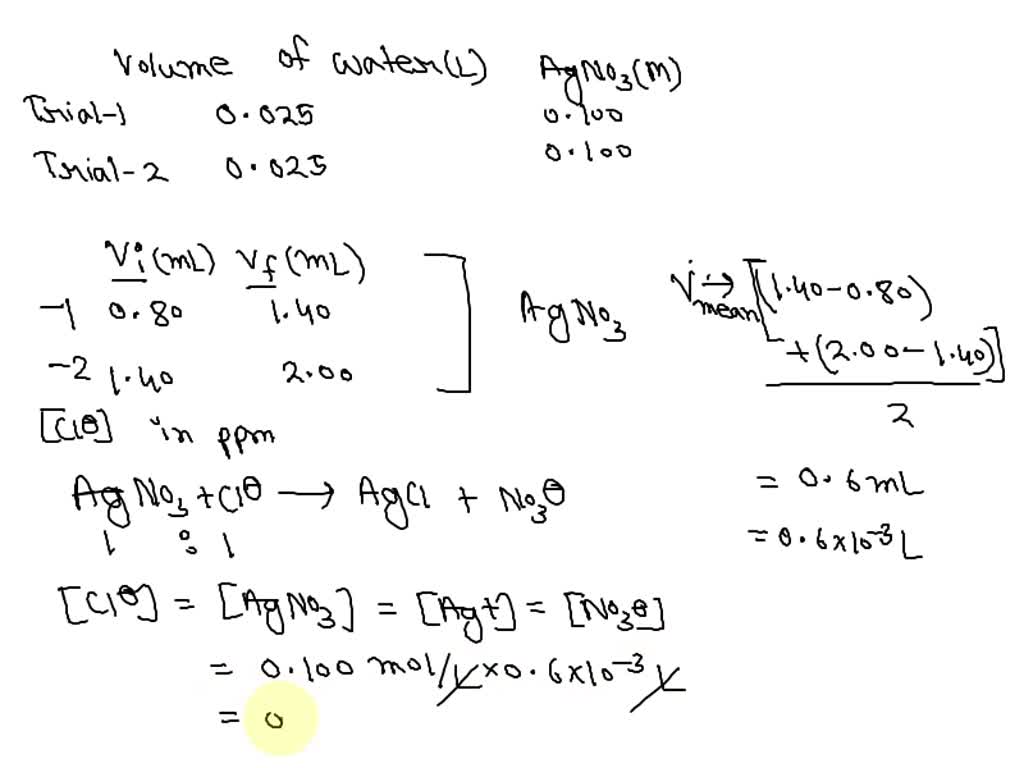 Volume of water(L) AgNO₃(M)
Trial-1 0.025 0.100
Trial-2 0.025 0.100
Vi(mL) Vf(mL)
-1 0.80 1.40
-2 1.40 2.00
AgNO₃
V mean → [(1.40-0.80)
+(2.00-1.40)]
2
= 0.6mL
= 0.6×10⁻³L
[Cl⊖] in ppm
AgNO₃+Cl⊖ → AgCl + NO₃⊖
1 : 1
[Cl⊖] = [AgNO₃] = [Ag+] = [NO₃⊖]
= 0.100 mol/L×0.6×10⁻³ L
= 0